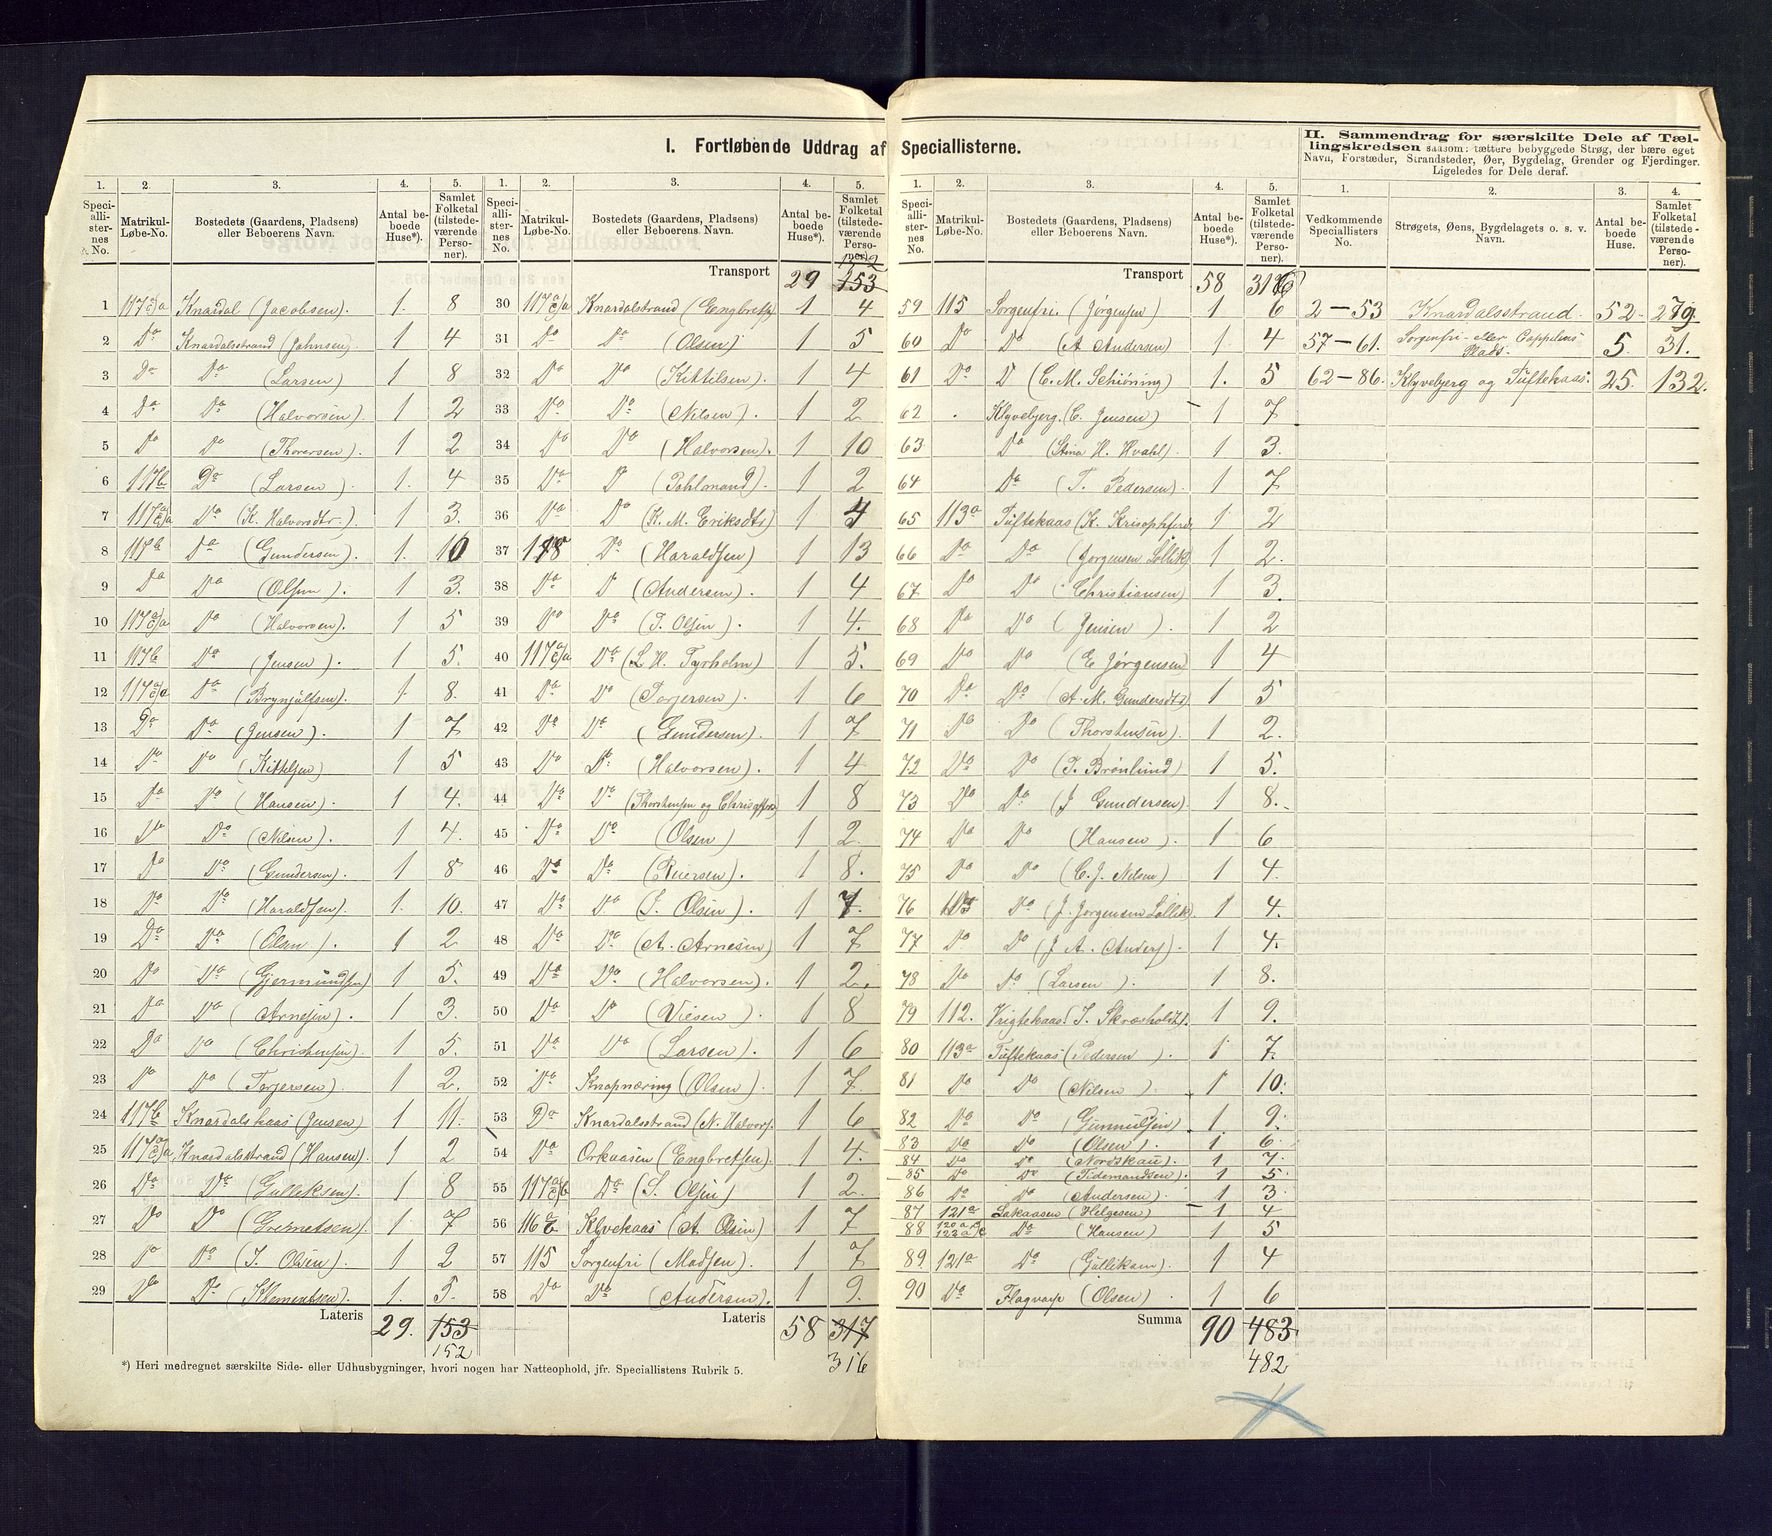 I. Fortløbende Uddrag af Speciallisterne.
II. Sammendrag for særskilte Dele af Tællingskredsen saasom: tættere bebyggede Strøg, der bære eget Navn, Forstæder, Strandsteder, Øer, Bygdelag, Grender og Fjerdinger. Ligeledes for Dele deraf.
1. 2. 3. 4. 5.
Speciallisternes No. Matrikul-Løbe-No. Bostedets (Gaardens, Pladsens) eller Beboerens Navn. Antal beboede Huse*). Samlet Folketal (tilstedeværende Personer).
1 117 a/a Knardal (Jacobsen) 1. 8
2 Do Knardalsstrand (Johnsen) 1 4
3 Do Do (Larsen) 1 8
4 Do Do (Halvorsen). 1 2
5 Do Do (Thorersen). 1 2
6 117b Do (Larsen) 1. 4
7 Do (K. Halvorsdtr.) 1 3.
8 117b Do (Gundersen). 1. 10
9 Do Do (Olsen) 1 3.
10 Do (Halvorsen). 1 5
11 117b Do (Jensen). 1 5.
12 Do (Brynjulfsen). 1 8.
13 Do Do (Jensen). 1 7
14 Do Do (Kittelsen) 1 5
15 Do Do (Hansen) 1 4.
16 Do Do (Nilsen). 1 4.
17 Do Do (Gundersen). 1 8
18 Do Do (Haraldsen). 1. 10.
19 Do Do (Olsen). 1 2
20 Do Do (Gjermundsen) 1 5.
21 Do Do (Arnesen) 1 3.
22 Do Do (Christensen). 1 5.
23 Do Do (Torjersen) 1 2.
24 117b Knardalskaas (Jensen) 1 11.
25 Knardalsstrand (Hansen). 1 2
26 Do Do (Gulleksen). 1 8
27 Do Do 1 7
28 Do Do (J. Olsen) 1 2
29 Do Do (Klementsen). 1. 5.
Lateris 29. 153 152
1. 2. 3. 4. 5.
Speciallisternes No. Matrikul-Løbe-No. Bostedets (Gaardens, Pladsens) eller Beboerens Navn. Antal beboede Huse*). Samlet Folketal (tilstedeværende Personer).
Transport 29 153 152
30 Knardalstrand (Engbretsen) 1 4
31 Do Do (Olsen) 1 5
32 Do Do (Kittilsen). 1 4
33 Do Do (Nilsen). 1 2
34 Do Do (Halvorsen). 1 10
35 Do Do (Pohlmand). 1 2
36 Do Do (K. M. Eriksdtr) 1
37 118 Do (Haraldsen) 1 13
38 Do Do (Andersen) 1 4
39 Do Do (T. Olsen). 1 4.
40 Do (L. H. Tyrholm) 1 5.
41 Do Do (Torjersen) 1 6
42 Do Do (Gundersen) 1 7
43 Do Do (Halvorsen). 1 4
44 Do Do (Thorstensen og Christoffers) 1 8
45 Do Do (Olsen) 1 2.
46 Do Do (Reiersen). 1 8.
47 Do Do (J. Olsen). 1 7.
48 Do Do (A. Arnesen) 1 7
49 Do Do (Halvorsen). 1 2.
50 Do Do (Viesen) 1 8
51 Do Do (Larsen) 1 6
52 Do Knapnæring (Olsen) 1 7.
53 Do Knardalsstrand (N. Halvors. 1 6
54 Do Orkaasen (Engbretsen). 1 4.
55 Do (S. Olsen) 1 2.
56 116 Klyvekaas (A. Olsen) 1 7
57 115 Sorgenfri (Madsen). 1 7
58 Do Do (Andersen). 1 9.
Lateris 58 317 316
*) Heri medregnet særskilte Side- eller Udhusbygninger, hvori nogen har Natteophold, jfr. Speciallistens Rubrik 5.
1. 2. 3. 4. 5.
Speciallisternes No. Matrikul-Løbe-No. Bostedets (Gaardens, Pladsens) eller Beboerens Navn. Antal beboede Huse*). Samlet Folketal (tilstedeværende Personer).
Transport 58 316
59 115 Sorgenfri. (Jørgensen) 1 6
60 Do Do (A Andersen) 1 4
61 Do D (C. M. Schiöning) 1. 5
62 Klyvebjerg. (C. Jensen) 1 7
63 Do (Stina H. Hvahl) 1 3.
64 Do (T. Pedersen) 1 7
65 113a Tuftekaas (K. Kristophfersd 1 2
66 Do Do (Jørgensen Löllik) 1 2.
67 Do Do (Christiansen) 1 3.
68 Do Do (Jensen). 1 2
69 Do Do (E Jørgensen 1 4
70 Do Do (A. M. Gundersdtr) 1 5
71 Do Do (Thorstensen). 1 2.
72 Do Do (J. Brønlund) 1 5.
73 Do Do (J Gundersen). 1 8.
74 Do Do (Hansen). 1 6
75 Do Do (C. J. Nilsen) 1 4.
76 113 Do (J. Jørgensen Løllik). 1 4.
77 Do Do (J A. Anders). 1 4.
78 Do Do (Larsen). 1 8.
79 112. Vrigtekaas. (J. Skræsholdt). 1 9.
80 113a Tuftekaas (Pedersen). 1 7.
81 Do Do (Nilsen) 1 10.
82 Do Do (Gunnulfsen) 1 9.
83 Do Do (Olsen). 1 6.
84 Do Do (Nordskau). 1 7.
85 Do Do (Tidemandsen). 1 5
86 Do Do (Andersen). 1 3
87 121a Lakaasen (Helgesen) 1 4
88 120a 123a Do (Hansen) 1 5
89 121a Do (Gullikssen) 1 4
90 Do (Olsen) 1 6
Summa 90 483 482
1. 2. 3. 4.
Vedkommende Speciallisters No. Strøgets, Øens, Bygdelagets o. s. v. Navn. Antal beboede Huse. Samlet Folketal (tilstedeværende Personer).
2-53 Knardalsstrand. 52. 279.
57-61. Sorgenfri eller Cappelens Plads. 5. 31.
62-86. Klyvebjerg og Tuftekaas. 25. 132.